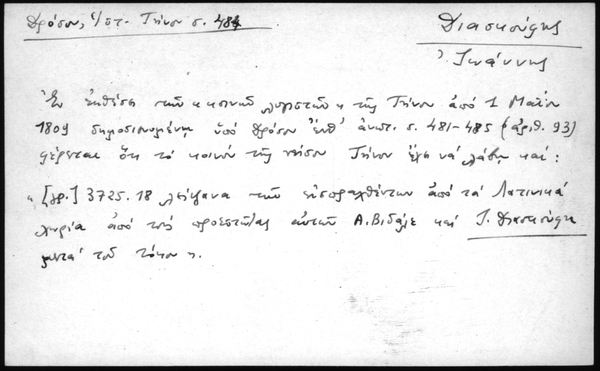 Δρόσου, Ἱστ. Τήνου σ. 484
Διασκούρης
Ἰωάννης
Ἐν ἐκθέσει τῶν «κοινῶν λογιστῶν» τῆς Τήνου ἀπό 1 Μαΐου
1809 δημοσιευομένῃ ὑπό Δρόσου ἔνθ' ἀνωτ. σ. 481-485 (ἀριθ. 93)
φέρεται ὅτι τό κοινόν τῆς νήσου Τήνου ἔχει νά λάβῃ καί:
« [γρ.] 3725.18 λείψανα τῶν εἰσπραχθέντων ἀπό τά Λατινικά
χωρία ἀπό τούς προεστῶτας αὐτῶν Α. Βιδάλε καί Ι. Διασκούρη
μετά τοῦ τόκου».